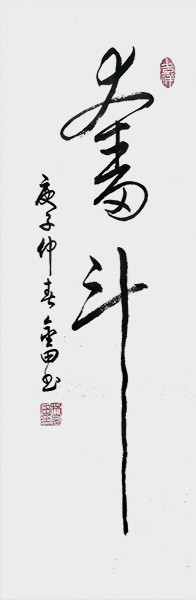 奮斗
庚子仲春金田书